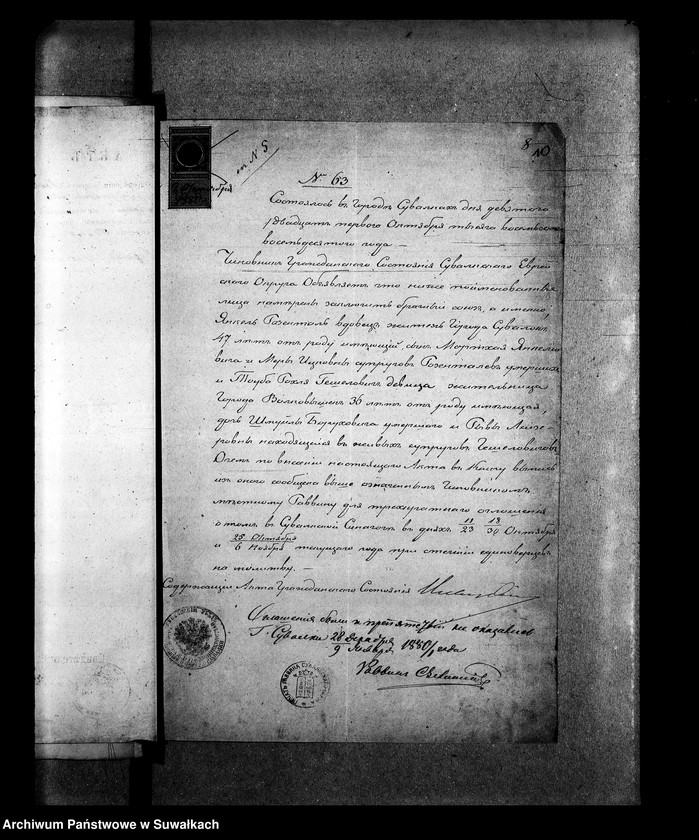 8
10
к N 5
№ 63
Состоялось въ Городѣ Сувалкахъ дня девятого
/двадцать первого Октября тысяча восемьсотъ
восемьдесятого года —
Чиновникъ Гражданского Состоянія Сувалкского Еврей
ского Округа Объявляетъ что ниже поименованныя
лица намѣрены заключить брачный союзъ, а именно:
Янкель Розенталь вдовецъ житель Города Сувалокъ,
47 лѣтъ отъ роду имѣющій, сынъ Мортхая Янкеле-
вича и Меры Ицковны супруговъ Розенталевъ умершихъ
и Тауба Рохля Гешеловичъ девица жительница
Города Волковышекъ 36 лѣтъ отъ роду имѣющая,
дочь Шмуйлы Боруховича умершаго и Ривы Лейзе-
ровны находящейся въ живыхъ супруговъ Гешеловичовъ
О чемъ по внесеніи настоящаго Акта въ Книгу выпись
изъ оного сообщена выше означеннымъ Чиновникомъ
мѣстному Раввину для трехкратнаго оглашенія
о томъ въ Сувалкской Синагогѣ въ дняхъ 11/23 18/30 Октября
и 25 Октября/6 Ноября текущего года при стеченіи единоверцевъ
на молитву. —
Содержащій Акта Гражданского Состоянія
Оглашенія были и препятствій не оказалось
Г. Сувалки 28 Декабря
9 Января 1880/1 года
Раввинъ
Archiwum Państwowe w Suwałkach